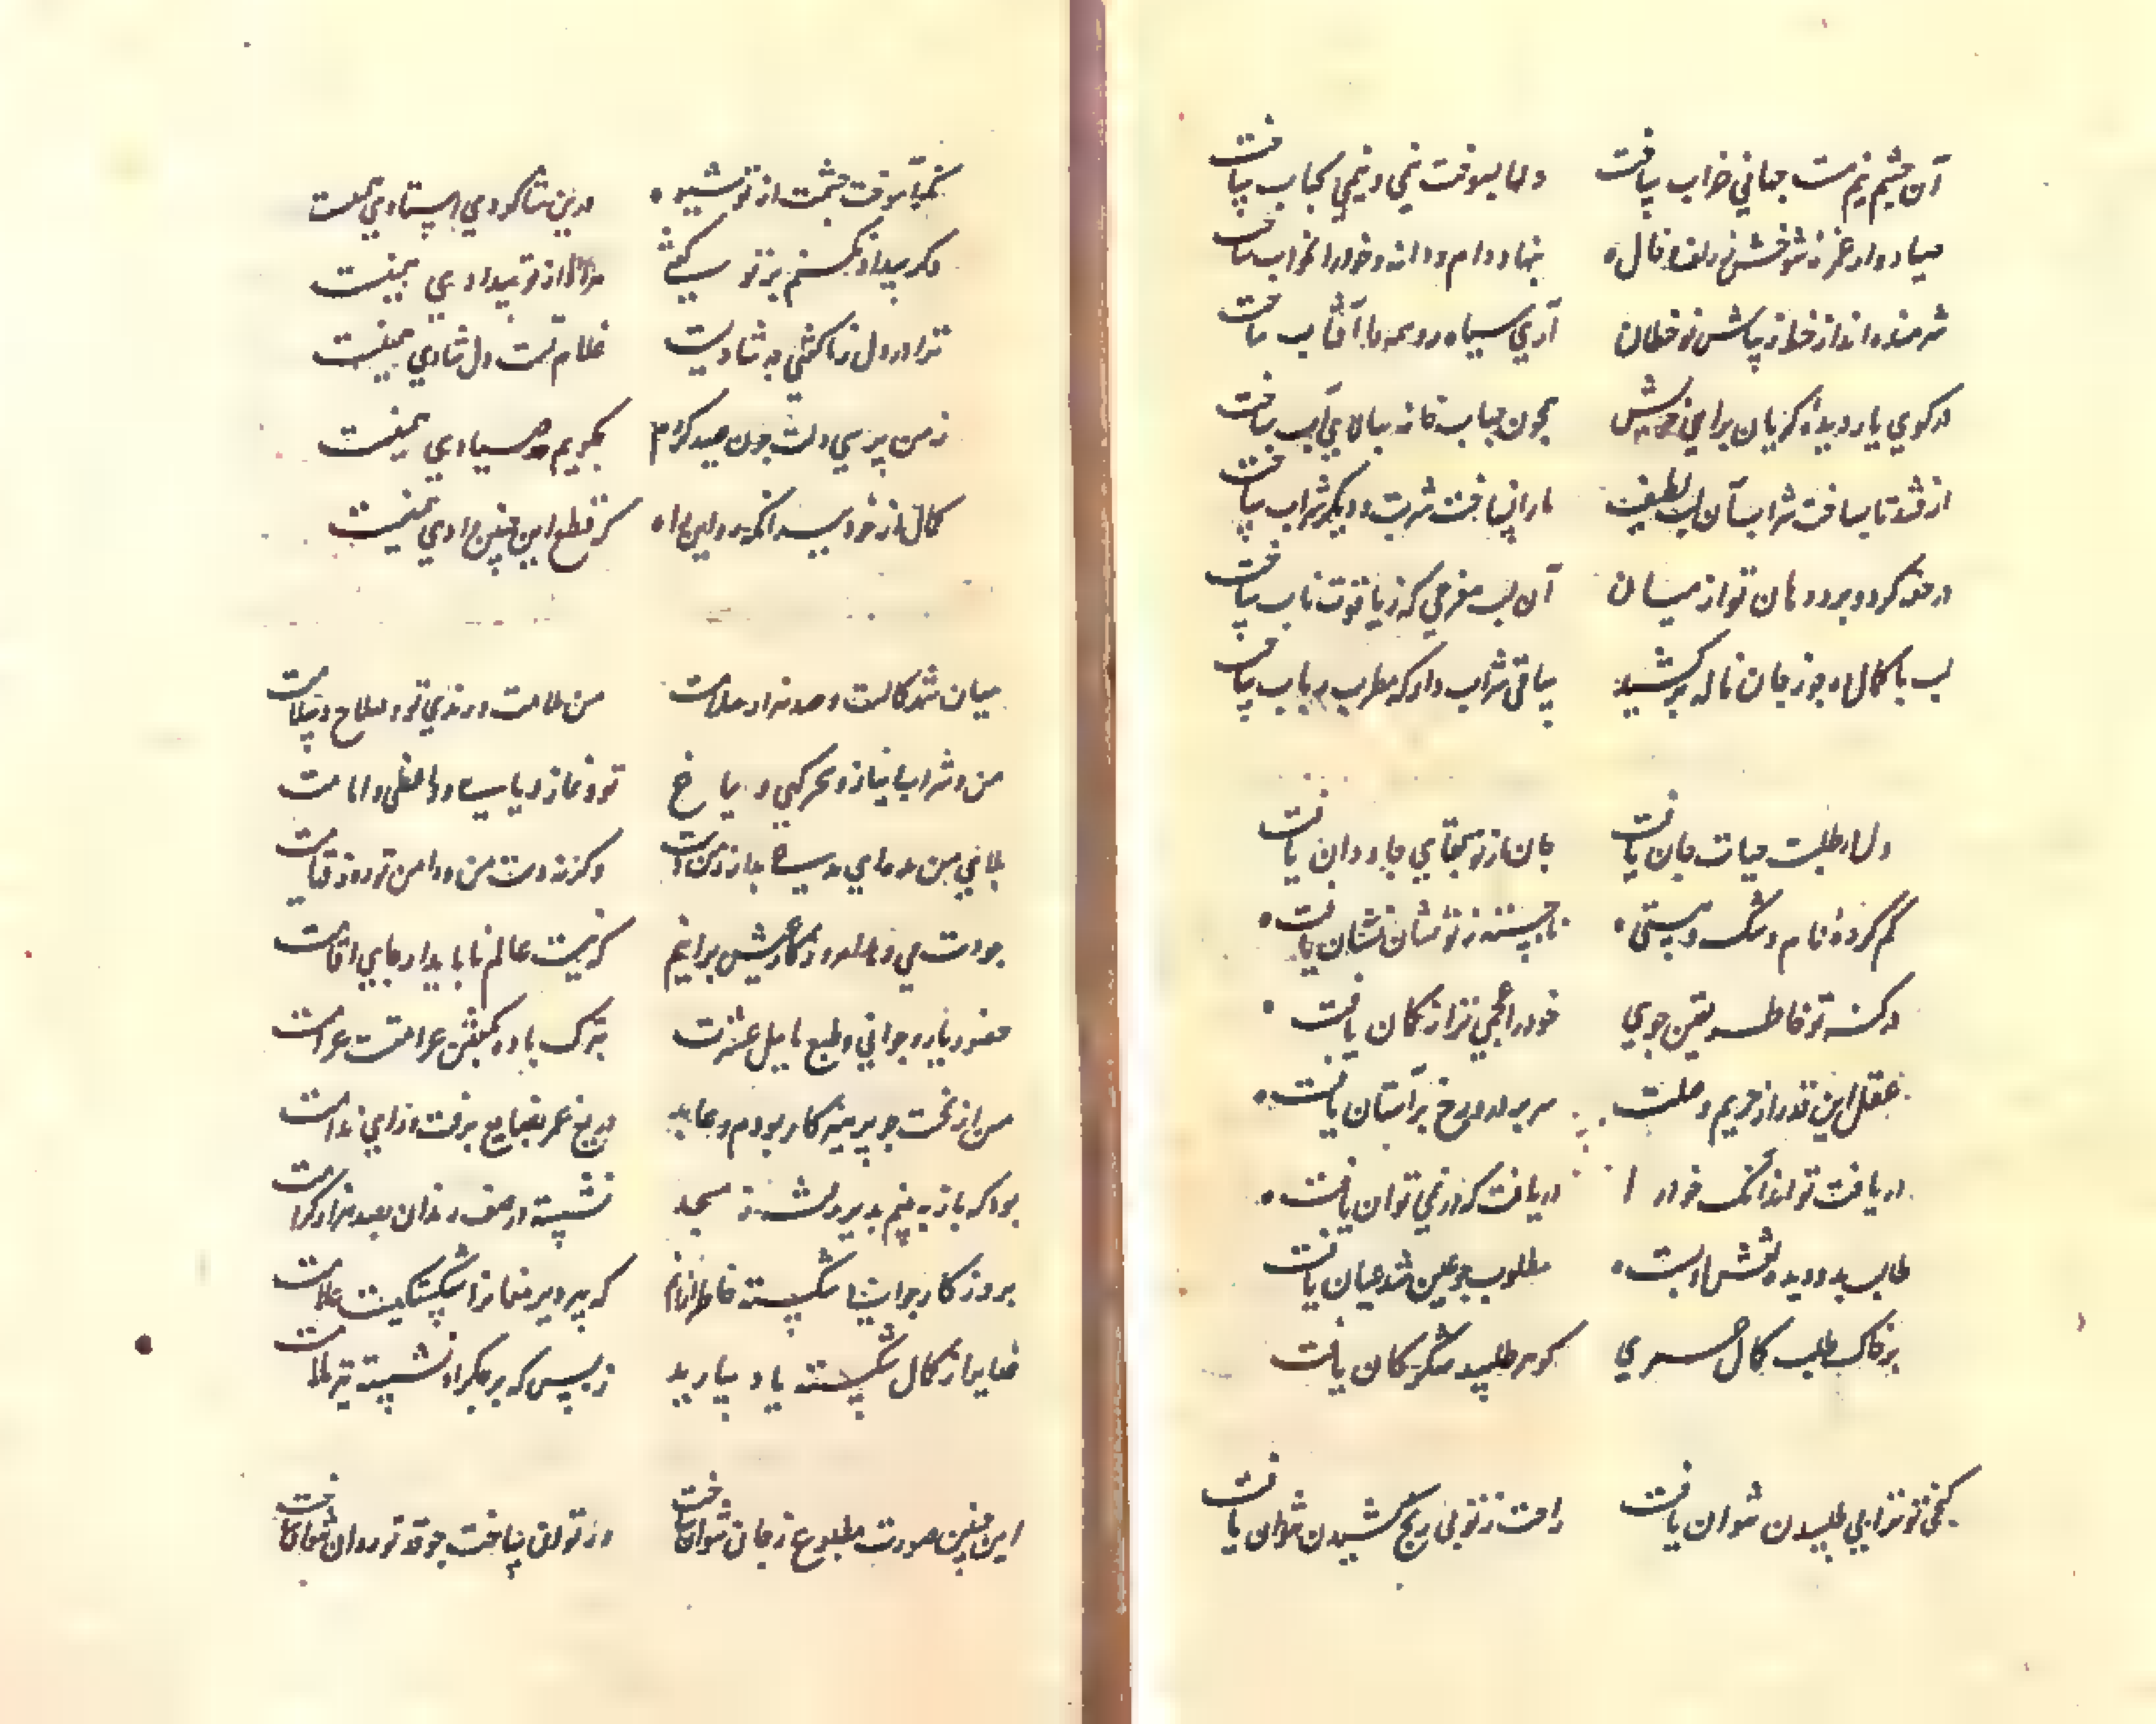 آن چشم نیم مست جهانی خراب یافت دلها بسوخت نیمی و نیمی کباب یافت
صیاد وار غمزه شوخش ز زلف و خال نهاد دام و دانه و خود را بخواب یافت
شرمنده‌اند از خط زیباش نوخطان آری سیاه رو همه را آفتاب یافت
در کوی یار دیده گریان برای خویش همچون حباب خانه ببالای آب یافت
از قند تا بساخت شراب آن لب لطیف ما را نساخت شربت و دیگر شراب یافت
در حقه کرد و برد دهان تو از میان آن لب مفرحی که ز یاقوت ناب یافت
لب با کمال چو ز جان ناله برکشید ساقی شراب داد که مطرب رباب یافت
دل از طلبت حیات جان یافت جان از تو بقای جاودان یافت
گم کرده نام و ننگ و هستی ناجسته ز تو نشان نشان یافت
در کنه تو خاطر یقین جوی خود را عجمی‌تر از گمان یافت
عقل این قدر از حریم وصلت سر بر در و رخ بر آستان یافت
دریافت تو اند آنک خود را دریافت که در نمی توان یافت
طالب بدو دیده نقش او بست مطلوب چو عین شد عیان یافت
بر خاک طلب کمال سری گوهر طلبید مشکر کان یافت
گنجی تو ترا بی طلبیدن نتوان یافت راحت ز تو بی رنج کشیدن نتوان یافت
نخستآموخت چشمت از تو شیوه درین شاگردی استادی همینست
دگر بیداد نکنم بر تو گفتی مراد از تو بیدادی همینست
ترا در دل ز ناکشتی چه شادیست غلام تست دل شادی همینست
ز من پرسی دلت چون صید کردم بگویم صیادی همینست
کمال از خود ببر آنگه رو این راه که قطع این چنین وادی همینست
میان شهر کالست و صد هزار ملامت من و ملامت و رندی تو و صلاح و سلامت
من و شراب و نیاز و تو و نماز و ریا و واعظی و امامت
وگرنه دست من و دامن تو روز قیامت
که نیست عالم ناپایدار جای اقامت
حضور یار و جوانی و طبع مایل عشرت بترک باده گفتن غرامتست غرامت
من از نخست چو پرهیزکار بودم و عابد دریغ عمر بضایع برفت و زاهی ندامت
بود که باز ببینم بدیر مسجد نشسته در صف رندان بصد هزار کرامت
بروز کار جوانی شکسته خاطر ازانم که پیر دیر مغانرا شکستگیست علامت
خدایرا ز کمال شکسته یاد بیارید ز بس که بر جگر او نشسته تیر ملامت
این چنین صورت مطبوع ز جان نتوان ساخت ور توان ساخت چو قد تو روان نتوان ساخت